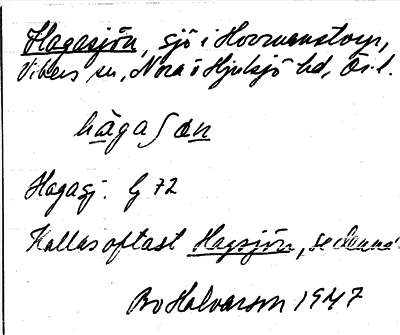 Hagasjön, sjö i Hormenstorp,
Vikers sn, Nora o Hjulsjö hd, Ör. l.
hàgaʃơn
Hagasj. G 72
Kallas oftast Hagsjön, se denna.
Bo Halvarson 1947